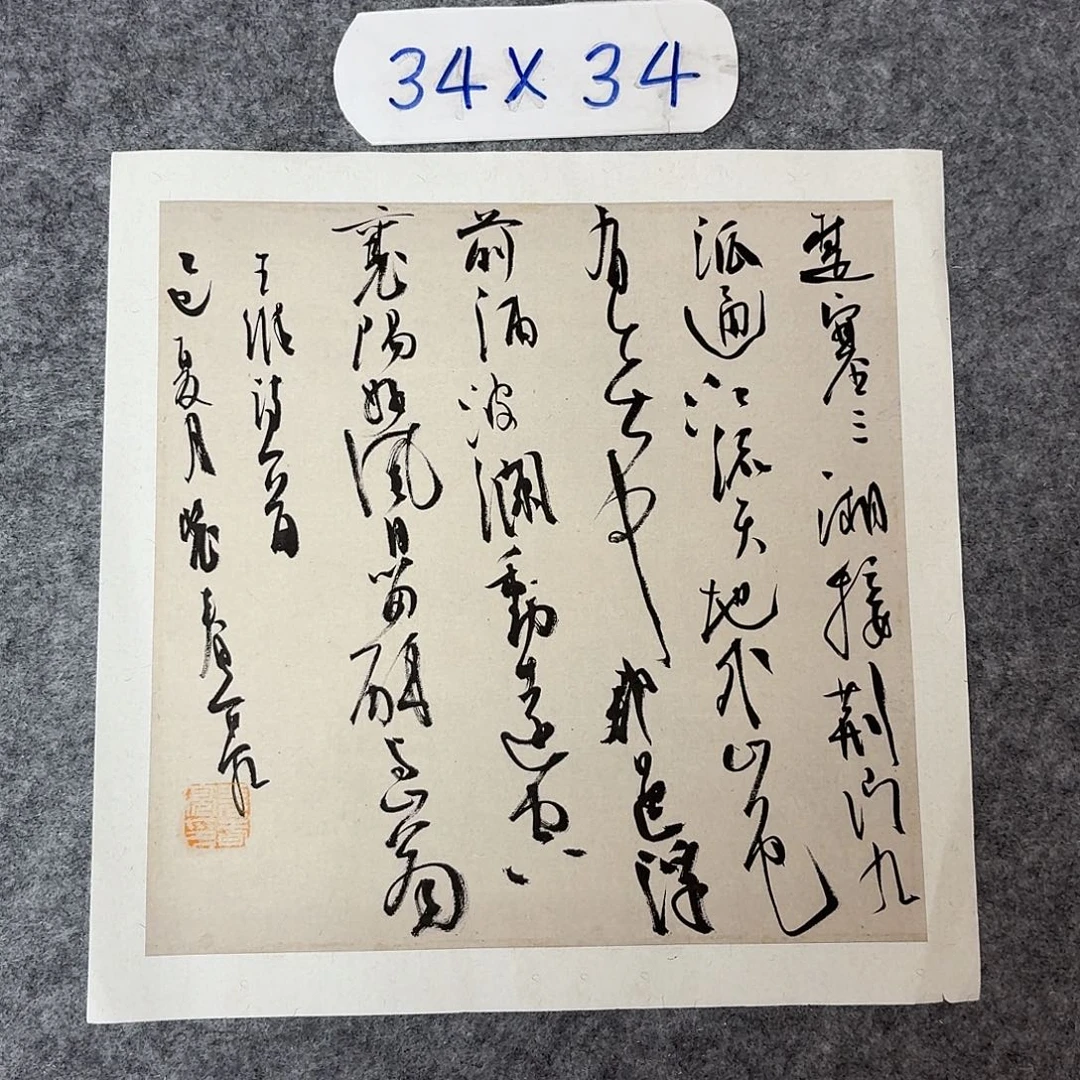 34×34
楚塞三湘接荆门九
派通江流天地外山色
有无中郡邑浮
前浦波澜動遠空
襄陽好風日留醉与山翁
王維詩一首
乙巳夏月